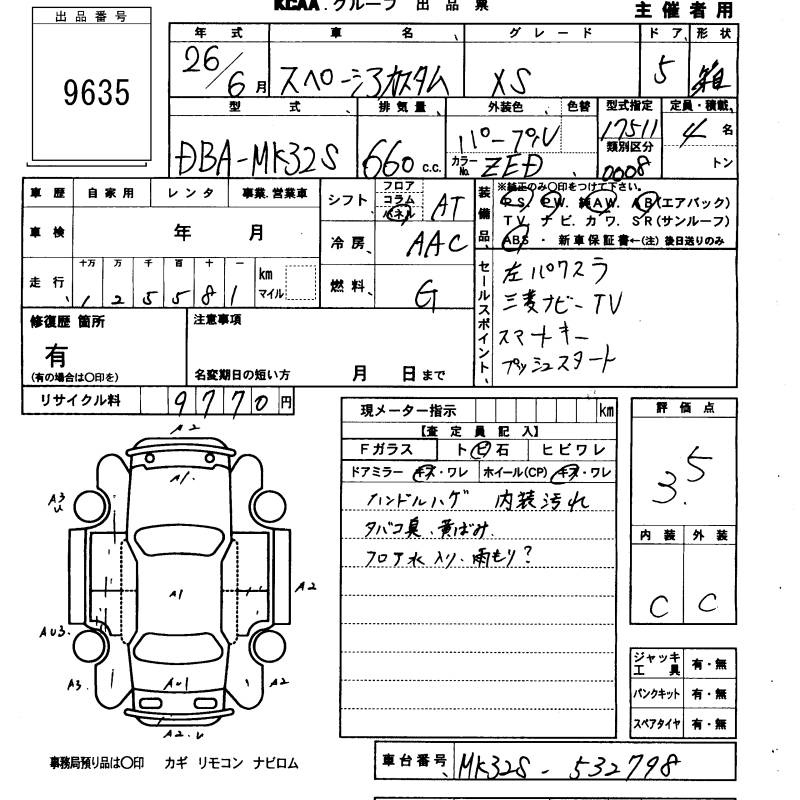 KCAA.グループ 出品票
主催者用
出品番号
9635
年式 車名 グレード ドア 形状
26/6月 スペーシアカスタム XS 5 箱
型式 排気量 外装色 色替 型式指定 定員・積載
17511
類別区分
0008
DBA-MK32S 660 c.c. パープル カラーNo. ZED 4名
トン
車歴 自家用 レンタ 事業.営業車
車検 年 月
走行 十万 万 千 百 十 一 km マイル
125581
シフト フロア コラム パネル AT
冷房 AAC
燃料 G
装備品
※純正のみ〇印をつけて下さい。
PS. PW. 純AW. AB(エアバック)
TV. ナビ. カワ. SR(サンルーフ)
ABS・新車保証書←(注)後日送りのみ
セールスポイント
左パワスラ
三菱ナビーTV
スマートキー
プッシュスタート
修復歴 箇所
有
(有の場合は〇印を)
注意事項
名変期日の短い方 月 日まで
リサイクル料 9770円
現メーター指示 km
【査定員記入】
Fガラス ト ビ 石 ヒビワレ
ドアミラー キズ・ワレ ホイール(CP) キズ・ワレ
ハンドルハゲ 内装汚れ
タバコ臭、黄ばみ
フロア水入り、雨もり?
評価点
3.5
内装 外装
C C
ジャッキ工具 有・無
パンクキット 有・無
スペアタイヤ 有・無
A2
A1.
A3
U
A1
A2
AU3.
A3.
AU1
A2
A2.U
事務局預り品は〇印 カギ リモコン ナビロム
車台番号 MK32S-532798